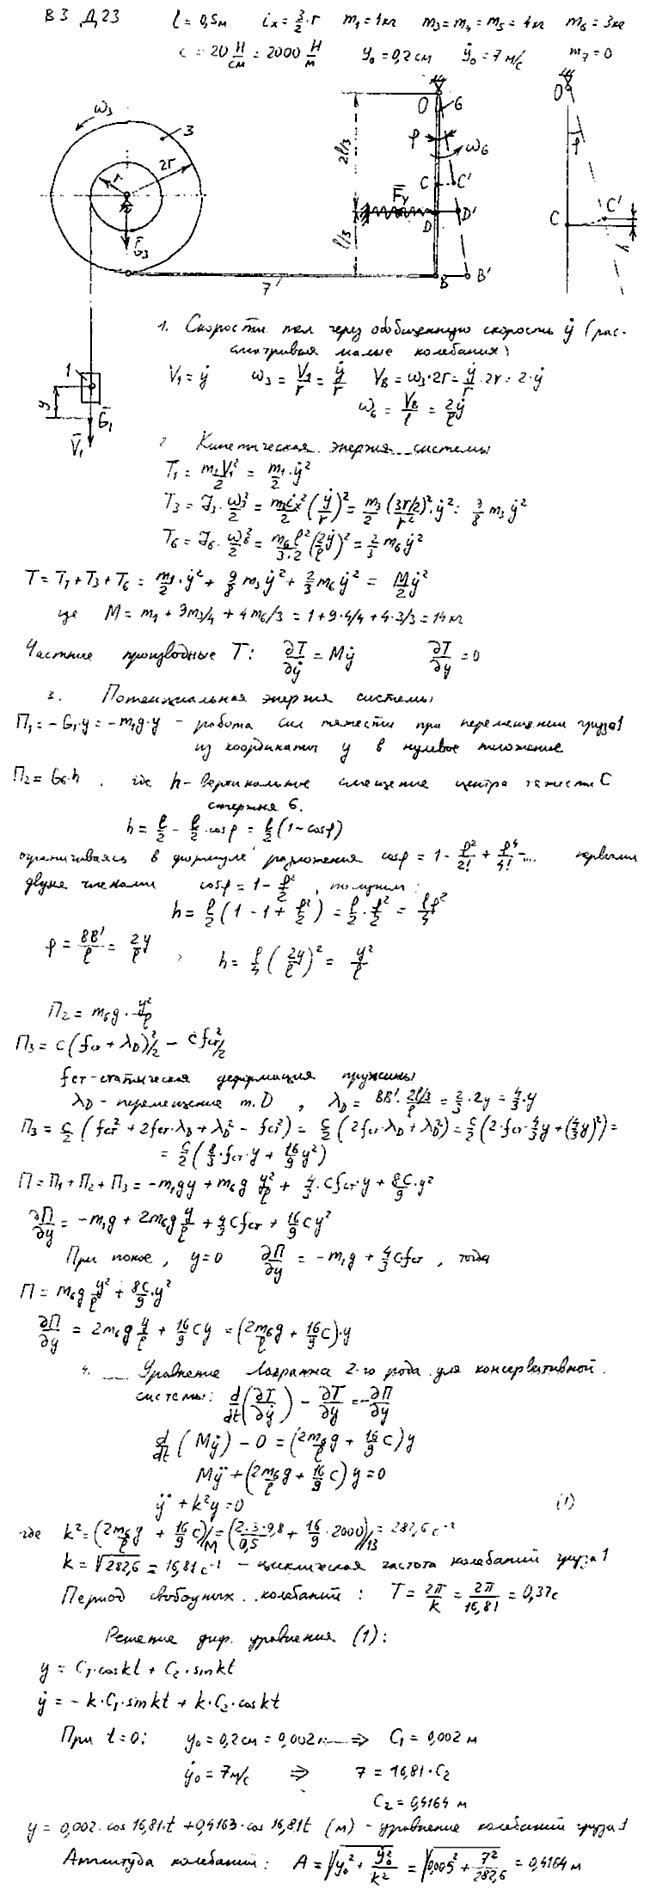 В 3 Д 23 l = 0,5м iₓ = 3/2·r m₁ = 1кг m₃ = m₄ = m₅ = 4кг m₆ = 3кг
c = 20 Н/см = 2000 Н/м y₀ = 0,2см ẏ₀ = 7 м/с m₇ = 0
ω₃ 3 2r r G₃
O 6 φ ω₆ 2l/3 C C' F̄у D D' l/3 B B' 7
O φ C C' h
1 y Ḡ₁ V̄₁
1. Скорости тел через обобщенную скорость ẏ (рас-
сматривая малые колебания)
V₁ = ẏ ω₃ = V₁/r = ẏ/r V_B = ω₃·2r = ẏ/r·2r = 2·ẏ
ω₆ = V_B/l = 2/l ẏ
2 Кинетическая энергия системы
T₁ = m₁V₁²/2 = m₁/2·ẏ²
T₃ = J₃·ω₃²/2 = m₃iₓ²/2 (ẏ/r)² = m₃/2 (3r/2)²/r²·ẏ² = 9/8 m₃ẏ²
T₆ = J₆·ω₆²/2 = m₆l²/3·2 (2/l ẏ)² = 2/3 m₆ẏ²
T = T₁ + T₃ + T₆ = m₁/2·ẏ² + 9/8 m₃ẏ² + 2/3 m₆ẏ² = M/2 ẏ²
где M = m₁ + 9m₃/4 + 4m₆/3 = 1 + 9·4/4 + 4·3/3 = 14 кг
Частные производные T: ∂T/∂ẏ = Mẏ ∂T/∂y = 0
3. Потенциальная энергия системы
П₁ = -G₁·y = -m₁g·y - работа сил тяжести при перемещении груза 1
из координаты y в нулевое положение
П₂ = G₆·h , где h - вертикальное смещение центра тяжести C
стержня 6.
h = l/2 - l/2·cosφ = l/2 (1 - cosφ)
ограничиваясь в формуле разложения cosφ = 1 - φ²/2! + φ⁴/4! - ... первыми
двумя членами cosφ = 1 - φ²/2 , получим:
h = l/2 (1 - 1 + φ²/2) = l/2·φ²/2 = lφ²/4
φ = BB'/l = 2y/l , h = l/4 (2y/l)² = y²/l
П₂ = m₆g·y²/l
П₃ = c(fст + λ_D)²/2 - cfст²/2
fст - статическая деформация пружины
λ_D - перемещение т. D , λ_D = BB'·2l/3/l = 2/3·2y = 4/3·y
П₃ = c/2 (fст² + 2fст·λ_D + λ_D² - fст²) = c/2 (2fст·λ_D + λ_D²) = c/2 (2·fст·4/3y + (4/3y)²) =
= c/2 (8/3·fст·y + 16/9 y²)
П = П₁ + П₂ + П₃ = -m₁gy + m₆g y²/l + 4/3·Cfст·y + 8C/9·y²
∂П/∂y = -m₁g + 2m₆g y/l + 4/3 Cfст + 16/9 Cy²
При покое, y=0 ∂П/∂y = -m₁g + 4/3 cfст , тогда
П = m₆g y²/l + 8c/9·y²
∂П/∂y = 2m₆g y/l + 16/9 cy = (2m₆g/l + 16/9 c)·y
4. Уравнение Лагранжа 2-го рода для консервативной
системы: d/dt(∂T/∂ẏ) - ∂T/∂y = -∂П/∂y
d/dt (Mẏ) - 0 = (2m₆g/l + 16/9 c) y
Mÿ + (2m₆g/l + 16/9 c) y = 0
ÿ + k²y = 0 (1)
где k² = (2m₆g/l + 16/9 c)/M = (2·3·9,8/0,5 + 16/9·2000)/13 = 282,6 с⁻²
k = √282,6 = 16,81 с⁻¹ - циклическая частота колебаний груза 1
Период свободных колебаний: T = 2π/k = 2π/16,81 = 0,37с
Решение диф. уравнения (1):
y = C₁·coskt + C₂·sinkt
ẏ = -k·C₁·sinkt + k·C₂·coskt
При t=0: y₀ = 0,2см = 0,002м ⟹ C₁ = 0,002 м
ẏ₀ = 7м/с ⟹ 7 = 16,81·C₂
C₂ = 0,4164 м
y = 0,002·cos 16,81·t + 0,4163·cos 16,81t (м) - уравнение колебаний груза 1
Амплитуда колебаний: A = √(y₀² + ẏ₀²/k²) = √(0,005² + 7²/282,6) = 0,4164 м